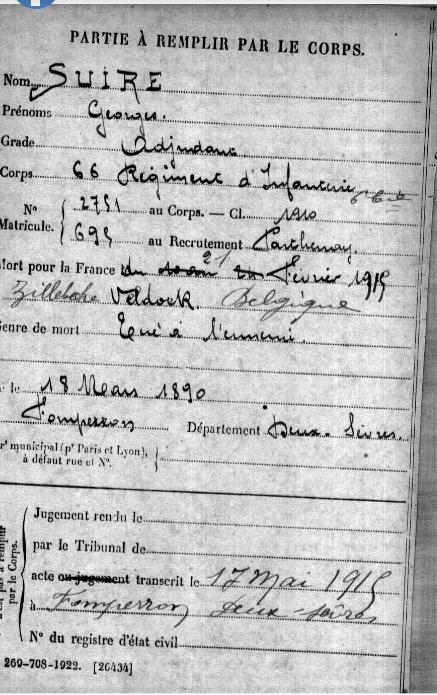 PARTIE À REMPLIR PAR LE CORPS.
Nom SUIRE
Prénoms Georges.
Grade Adjudant
Corps 66 Régiment d'Infanterie
N° Matricule. { 2751 au Corps. — Cl. 1910
695 au Recrutement Parthenay
Mort pour la France du 21 Février 1915
Zillebeke Veldoek. Belgique
Genre de mort Tué à l'ennemi.
le 18 Mars 1890
Fomperron Département Deux-Sèvres.
municipal (p' Paris et Lyon),
à défaut rue et N°.
par le Corps.
Jugement rendu le
par le Tribunal de
acte ou jugement transcrit le 17 Mai 1915
à Fomperron Deux-Sèvres
N° du registre d'état civil
269-708-1922. [26434]